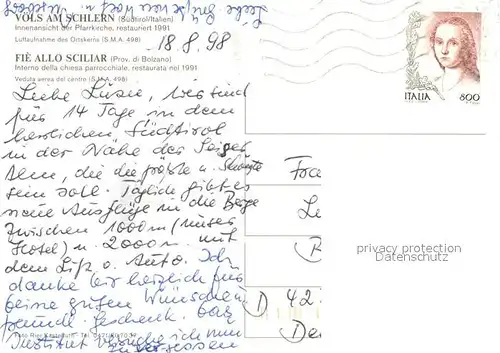 VÖLS AM SCHLERN (Südtirol/Italien)
Innenansicht der Pfarrkirche, restauriert 1991
Luftaufnahme des Ortskerns (S.M.A. 496)
18.8.98
FIÈ ALLO SCILIAR (Prov. di Bolzano)
Interno della chiesa parrocchiale, restaurata nel 1991
Veduta aerea del centro (S.M.A. 496)
ITALIA 800
Liebe Luzie, wir sind
für 14 Tage in dem
herrlichen Südtirol
in der Nähe der Seiser
Alm, die die größte u. Schönste
sein soll. Täglich gibt es
neue Ausflüge in die Berge
zwischen 1000m (unser
Hotel) u. 2000m. mit
dem Lift o. Auto. Ich
danke Dir herzlich für
Deine guten Wünsche u.
freundl. Geschenk. Das
Institut versuche ich nun
zu verlassen
Fra
Le
D 42
De
privacy protection
Datenschutz